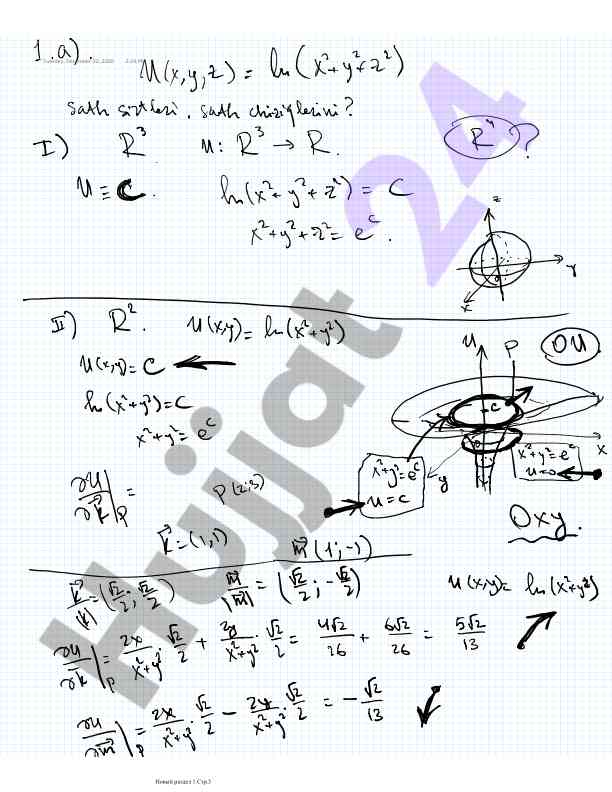 1.a).
u(x,y,z) = ln(x²+y²+z²)
sath sirtlari, sath chiziqlarini?
I) R³ u: R³ → R. R⁴ ?
u ≡ C. ln(x²+y²+z²) = C
x²+y²+z² = e^c.
z
y
x
II) R². u(x,y) = ln(x²+y²)
u P OU
u(x,y) = C
ln(x²+y²) = C
x²+y² = e^c
C
x
y
x²+y²=e^c
u=c
x²+y²=e^c
u=0
∂u/∂k⃗ |_P =
P(2;3)
Oxy.
k⃗ = (1,1) m⃗(1;-1)
k⃗/|k⃗| = (√2/2; √2/2) m⃗/|m⃗| = (√2/2; -√2/2) u(x,y) = ln(x²+y²)
∂u/∂k⃗ |_P = 2x/(x²+y²) · √2/2 + 2y/(x²+y²) · √2/2 = 4√2/26 + 6√2/26 = 5√2/13
∂u/∂m⃗ |_P = 2x/(x²+y²) · √2/2 - 2y/(x²+y²) · √2/2 = -√2/13
Hujjat 24
Новый раздел 1 Стр.3